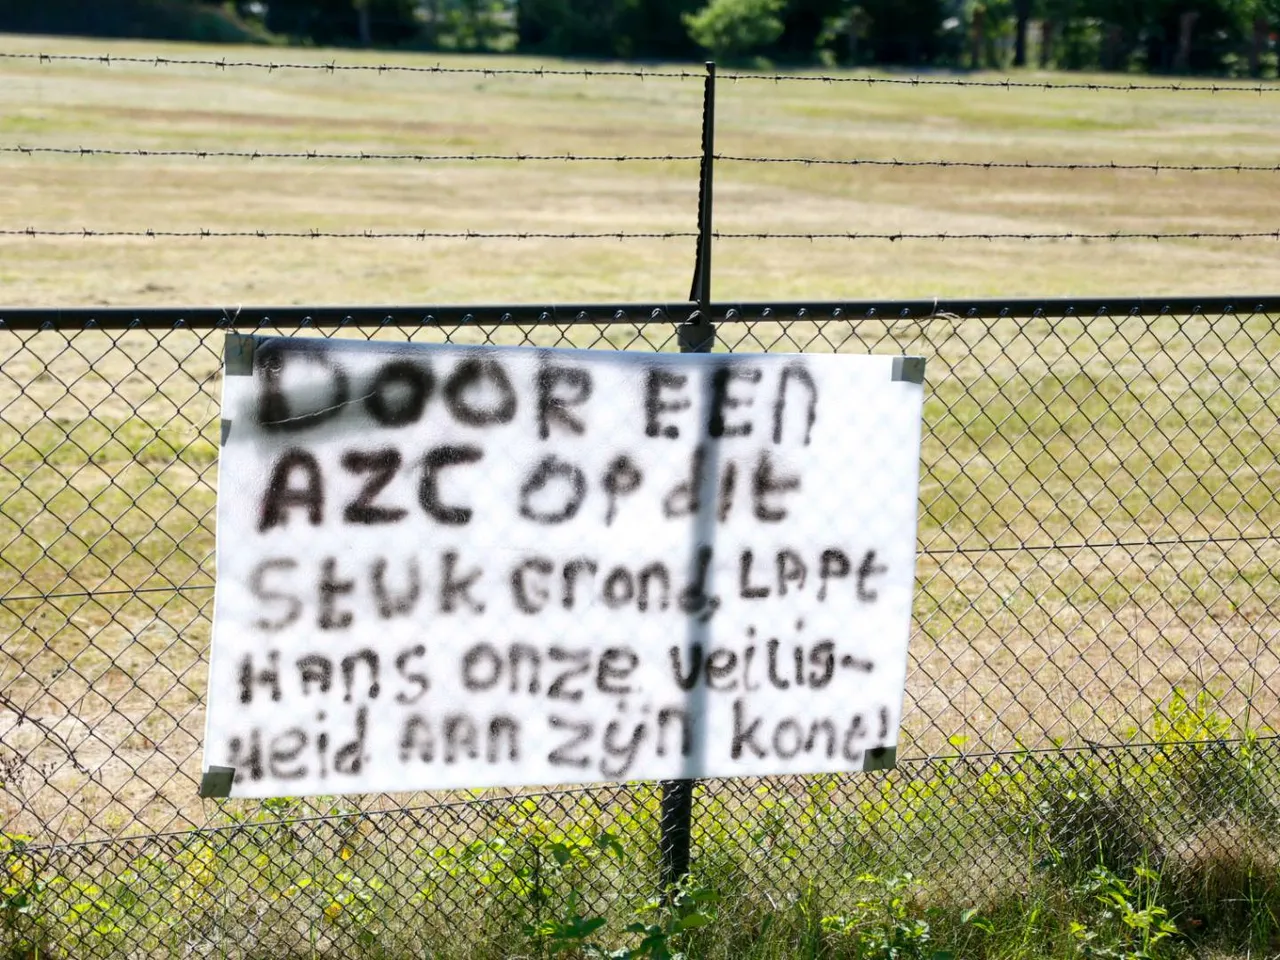 DOOR EEN
AZC OP dit
StUk Grond, LAPt
HAns onze veilig-
Heid AAn zijn kont!